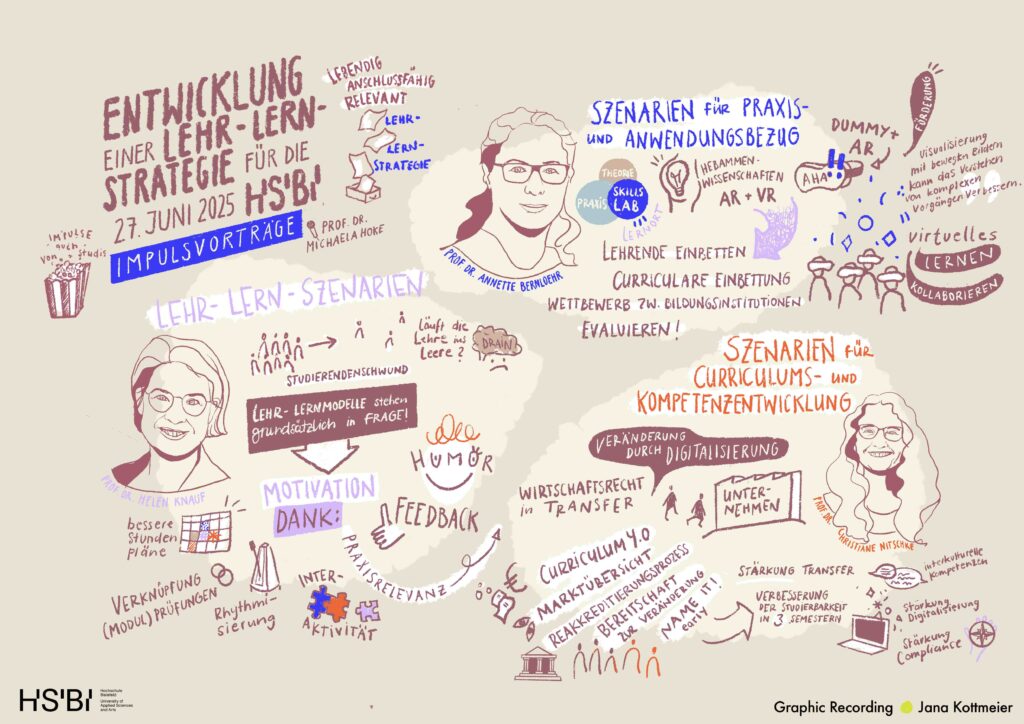 ENTWICKLUNG
EINER LEHR-LERN-
STRATEGIE FÜR DIE
27. JUNI 2025 HSBI
IMPULSVORTRÄGE
PROF. DR.
MICHAELA HOKE
LEBENDIG
ANSCHLUSSFÄHIG
RELEVANT
LEHR-
LERN-
STRATEGIE
IMPULSE
auch
von Studis
SZENARIEN für PRAXIS-
und ANWENDUNGSBEZUG
PROF. DR. ANNETTE BERNLOEHR
THEORIE
PRAXIS
SKILLS
LAB
LERNORT
HEBAMMEN-
WISSENSCHAFTEN
AR + VR
DUMMY +
AR
AHA!!
FÖRDERUNG
Visualisierung
mit bewegten Bildern
kann das Verstehen
von komplexen
Vorgängen verbessern.
LEHRENDE EINBETTEN
CURRICULARE EINBETTUNG
WETTBEWERB ZW. BILDUNGSINSTITUTIONEN
EVALUIEREN!
virtuelles
LERNEN
KOLLABORIEREN
LEHR-LERN-SZENARIEN
PROF. DR. HELEN KNAUF
STUDIERENDENSCHWUND
läuft die
Lehre ins
Leere?
DRAIN!
LEHR-LERNMODELLE stehen
grundsätzlich in FRAGE!
MOTIVATION
DANK:
HUMOR
FEEDBACK
PRAXISRELEVANZ
INTER-
AKTIVITÄT
Rhythmi-
sierung
VERKNÜPFUNG
(MODUL)PRÜFUNGEN
bessere
Stunden
pläne
SZENARIEN für
CURRICULUMS- und
KOMPETENZENTWICKLUNG
PROF. DR. CHRISTIANE NITSCHKE
VERÄNDERUNG
DURCH DIGITALISIERUNG
WIRTSCHAFTSRECHT
in TRANSFER
UNTER-
NEHMEN
CURRICULUM 4.0
MARKTÜBERSICHT
REAKKREDITIERUNGSPROZESS
BEREITSCHAFT
ZUR VERÄNDERUNG
NAME IT!
early
STÄRKUNG TRANSFER
VERBESSERUNG
DER STUDIERBARKEIT
IN 3 SEMESTERN
interkulturelle
Kompetenzen
Stärkung
Digitalisierung
Stärkung
Compliance
HSBI
Hochschule
Bielefeld
University of
Applied Sciences
and Arts
Graphic Recording Jana Kottmeier